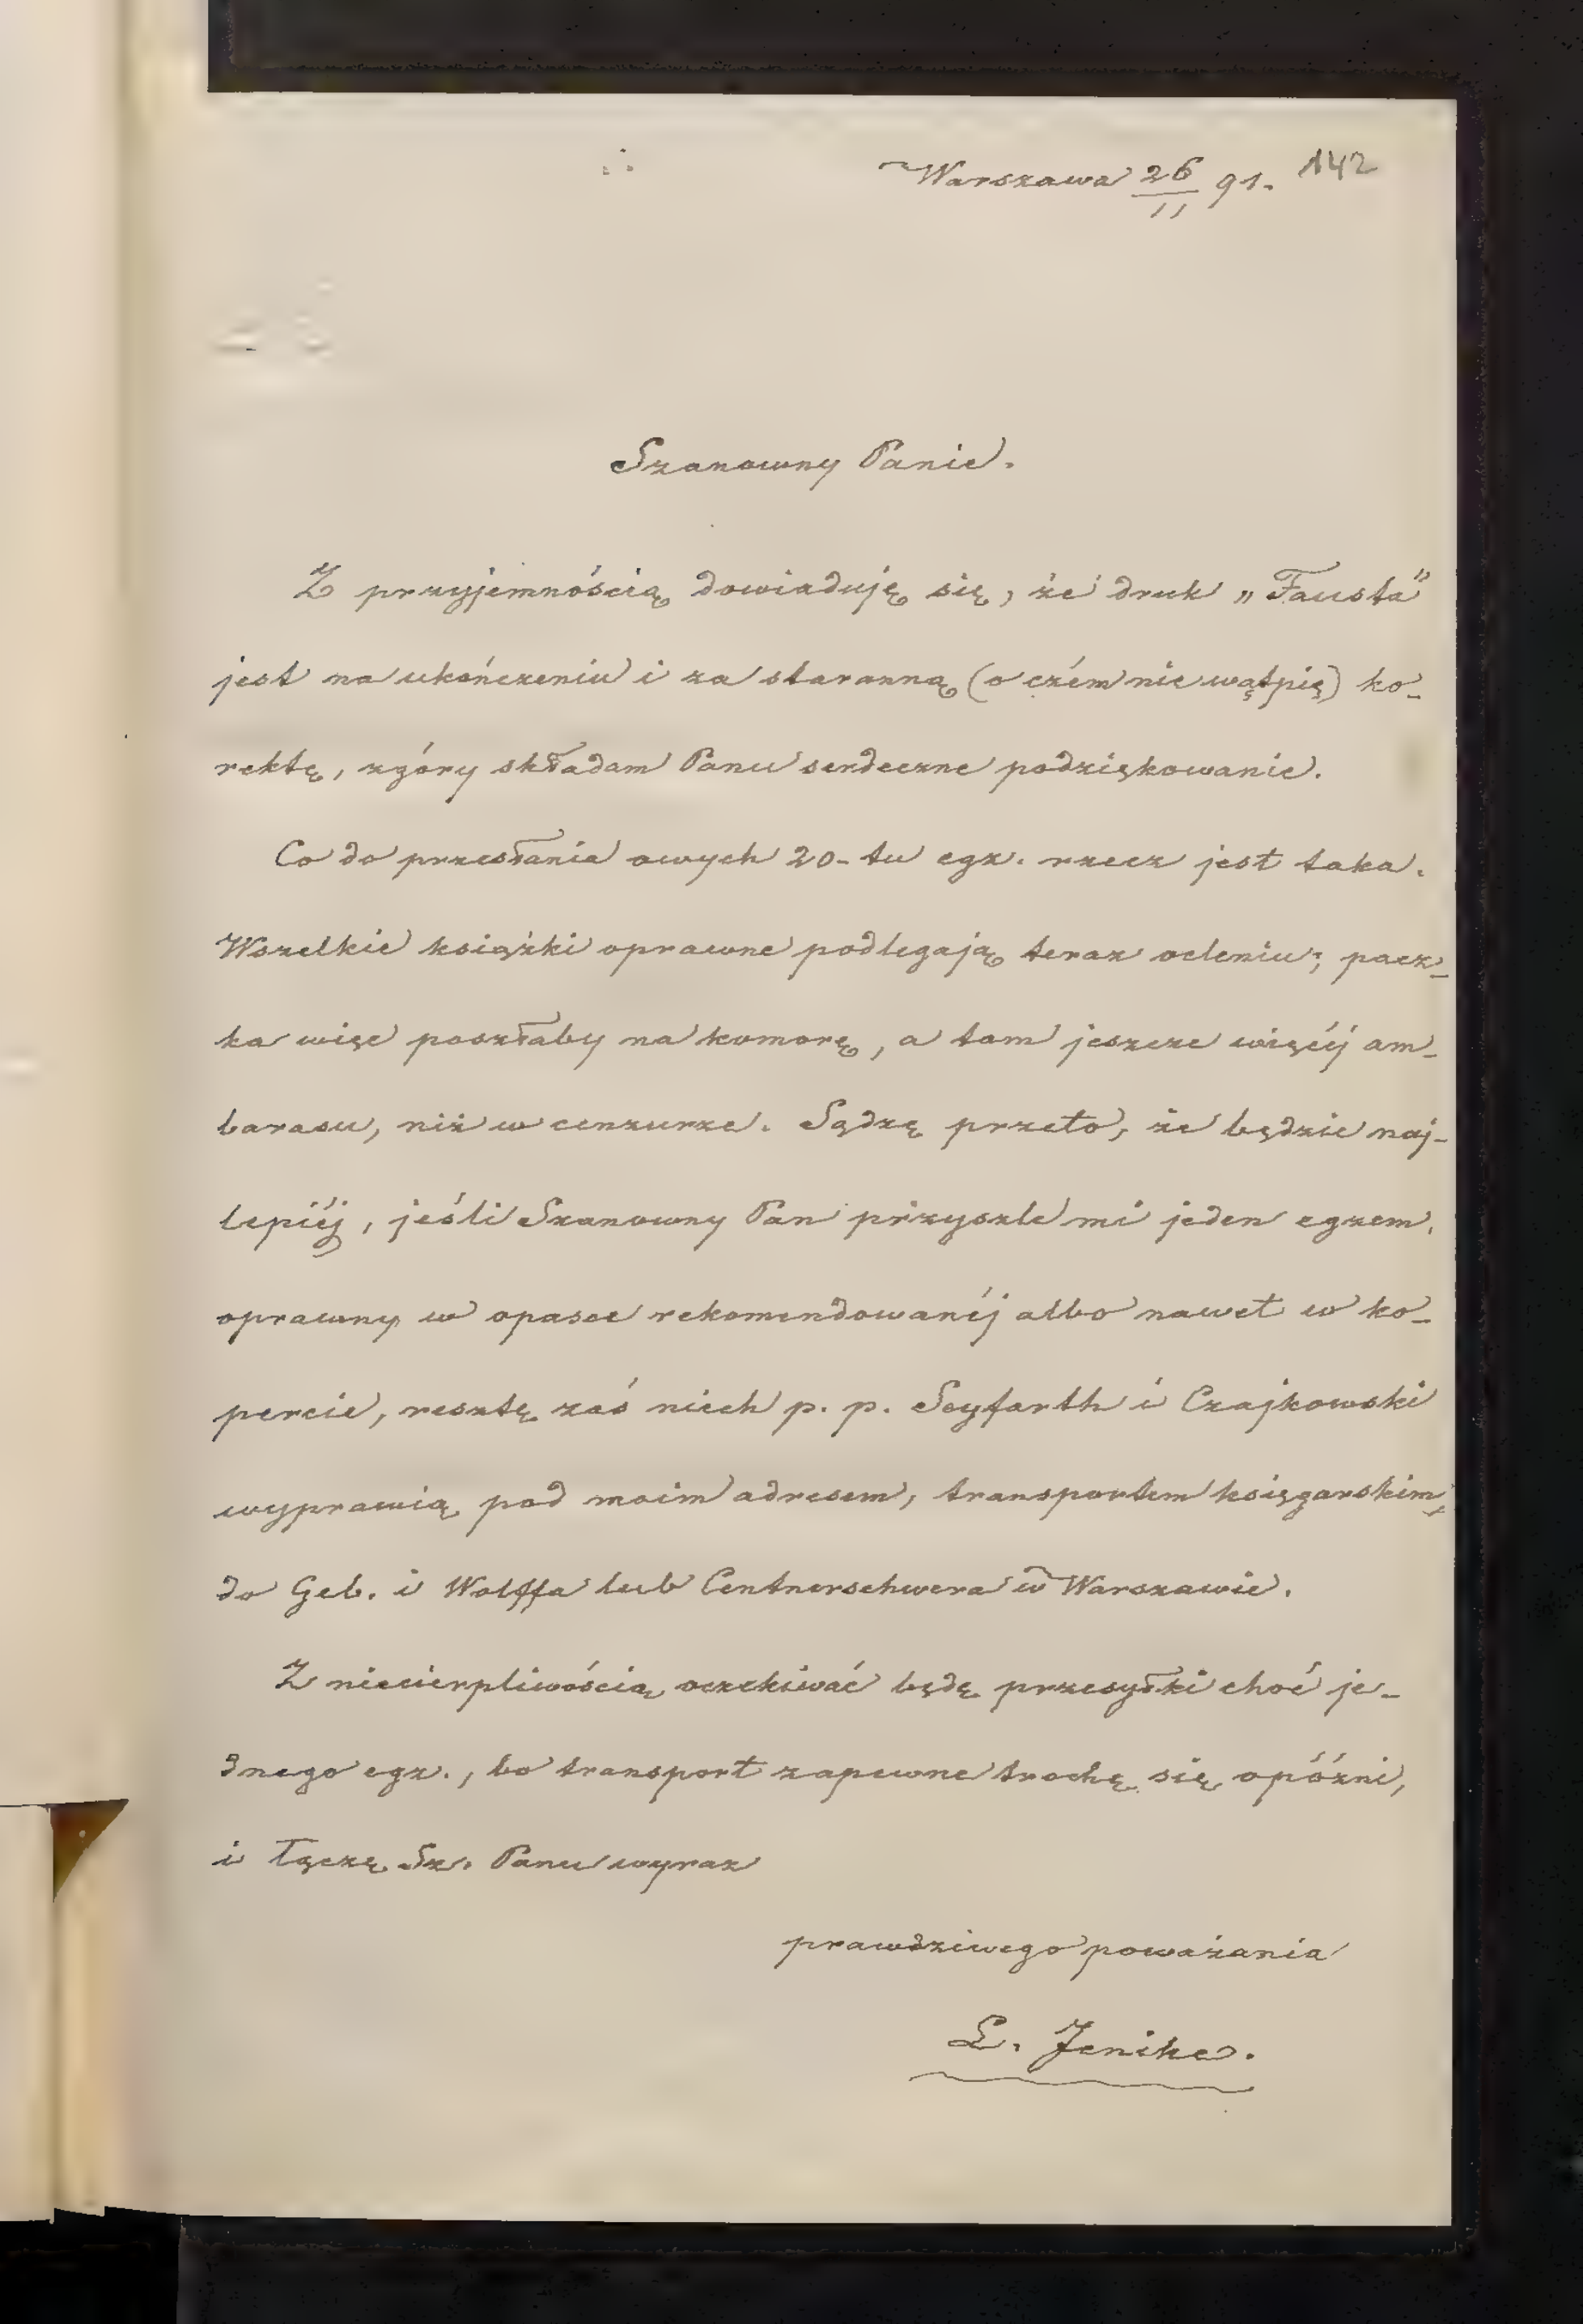 Warszawa 26/II 91. 142
Szanowny Panie.
Z przyjemnością dowiaduję się, że druk „Fausta”
jest na ukończeniu i za staranną (o czém nie wątpię) ko-
rektę, zgóry składam Panu serdeczne podziękowanie.
Co do przesłania owych 20-tu egz. rzecz jest taka.
Wszelkie książki oprawne podlegają teraz ocleniu; pacz-
ka więc poszłaby na komorę, a tam jeszcze więcéj am-
barasu, niż w cenzurze. Sądzę przeto, że będzie naj-
lepiéj, jeśli Szanowny Pan przyszle mi jeden egzem.
oprawny w opasce rekomendowanéj albo nawet w ko-
percie, resztę zaś niech p. p. Seyfarth i Czajkowski
wyprawią pod moim adresem, transportem księgarskim,
do Geb. i Wolffa lub Centnerschwera w Warszawie.
Z niecierpliwością oczekiwać będę przesyłki choć je-
dnego egz., bo transport zapewne trochę się opóźni,
i łączę Sz. Panu wyraz
prawdziwego poważania
L. Jenike.